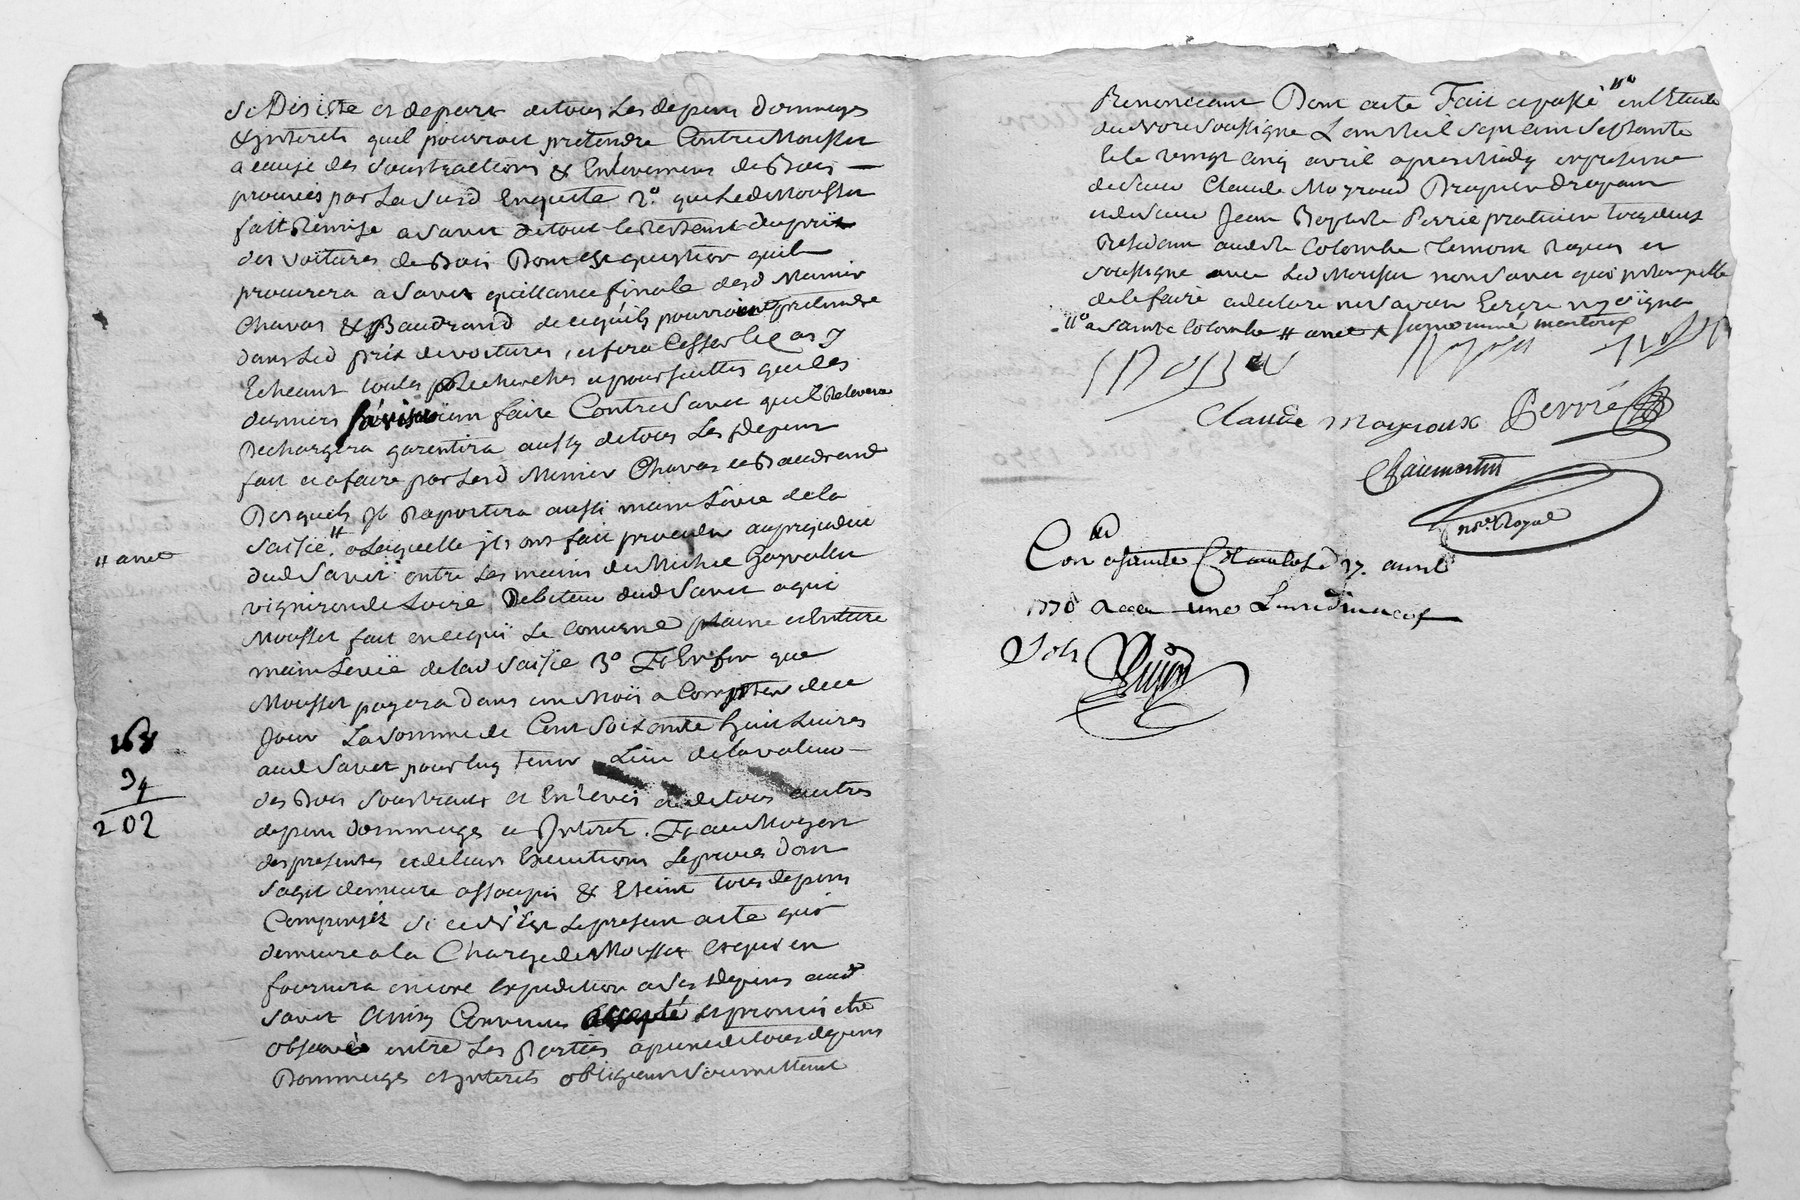 se Desiste et depart de tous Les depens dommages
& Interets quil pourroit pretendre Contre Mousset
a cause des Soustractions & Enlevemens de Bois
prouvés par La Susd Enquete 2.° que Led Mousset
fait Remise a Savet de tout le Restant du prix
des voitures de Bois Dont est question quil
procurera a Savet quittance finale desd Meunier
Chavas & Baudrand de ce quils pourroient pretendre
dans Led prix de voitures, et fera Cesser le Cas y
Echeant toutes Recherches et poursuittes que les
derniers faire Contre Savet quil Relevera
Dechargera garentira aussy de tous Les depens
fait et a faire par Lesd Meunier Chavas et Baudrand
Desquels Il Raportera aussi main Levée de la
Saisie " a Laquelle ils ont fait proceder au prejudice
dud Savet entre Les mains de Michel
vigneron de Loire Debiteur dud Savet a qui
Mousset fait en ce qui Le Concerne plaine et Entiere
main Levée de lad Saisie 3° Et Enfin que
Mousset payera dans un Mois a Compter de ce
Jour La Somme de Cent Soixante huit Livres
aud Savet pour luy tenir Lieu de la valeur
des Bois Soustraits et Enlevés et de tous autres
depens dommages et Interets. Et au Moyen
des presentes et de leurs Executions Le procès dont
Sagit demeure assoupis & Eteint tous depens
Compensés si ce n'est Le present acte qui
demeure a la Charge de Mousset Lequel en
fournira encore expedition a Ses depens aud
Savet Ainsy Convenu accepté et promis etre
observé entre Les Parties a peine de tous depens
Dommages et Interets obligeant Soumettant
" arret
168
34
202
Renonceant Dont acte Fait et passé "° en L'Etude
du No.re Soussigné L'an Mil Sept Cent Septante
le vingt cinq avril apres Midy en presence
de Sieur Claude Mayroud Drapier drapant
et de Sieur Jean Baptiste Perrié praticien tous deux
Residant aud Ste Colombe temoins Requis et
Soussigné avec Led Mousset non Savet qui interpellé
de le faire a declaré ne Savoir Ecrire ny Signer
"° a Sainte Colombe " arret
Claude mayroux Perrié
Chaumartin
no.re Royal
Con.lé a Sainte Colombe Le 27. avril
1770 Recu une Livre